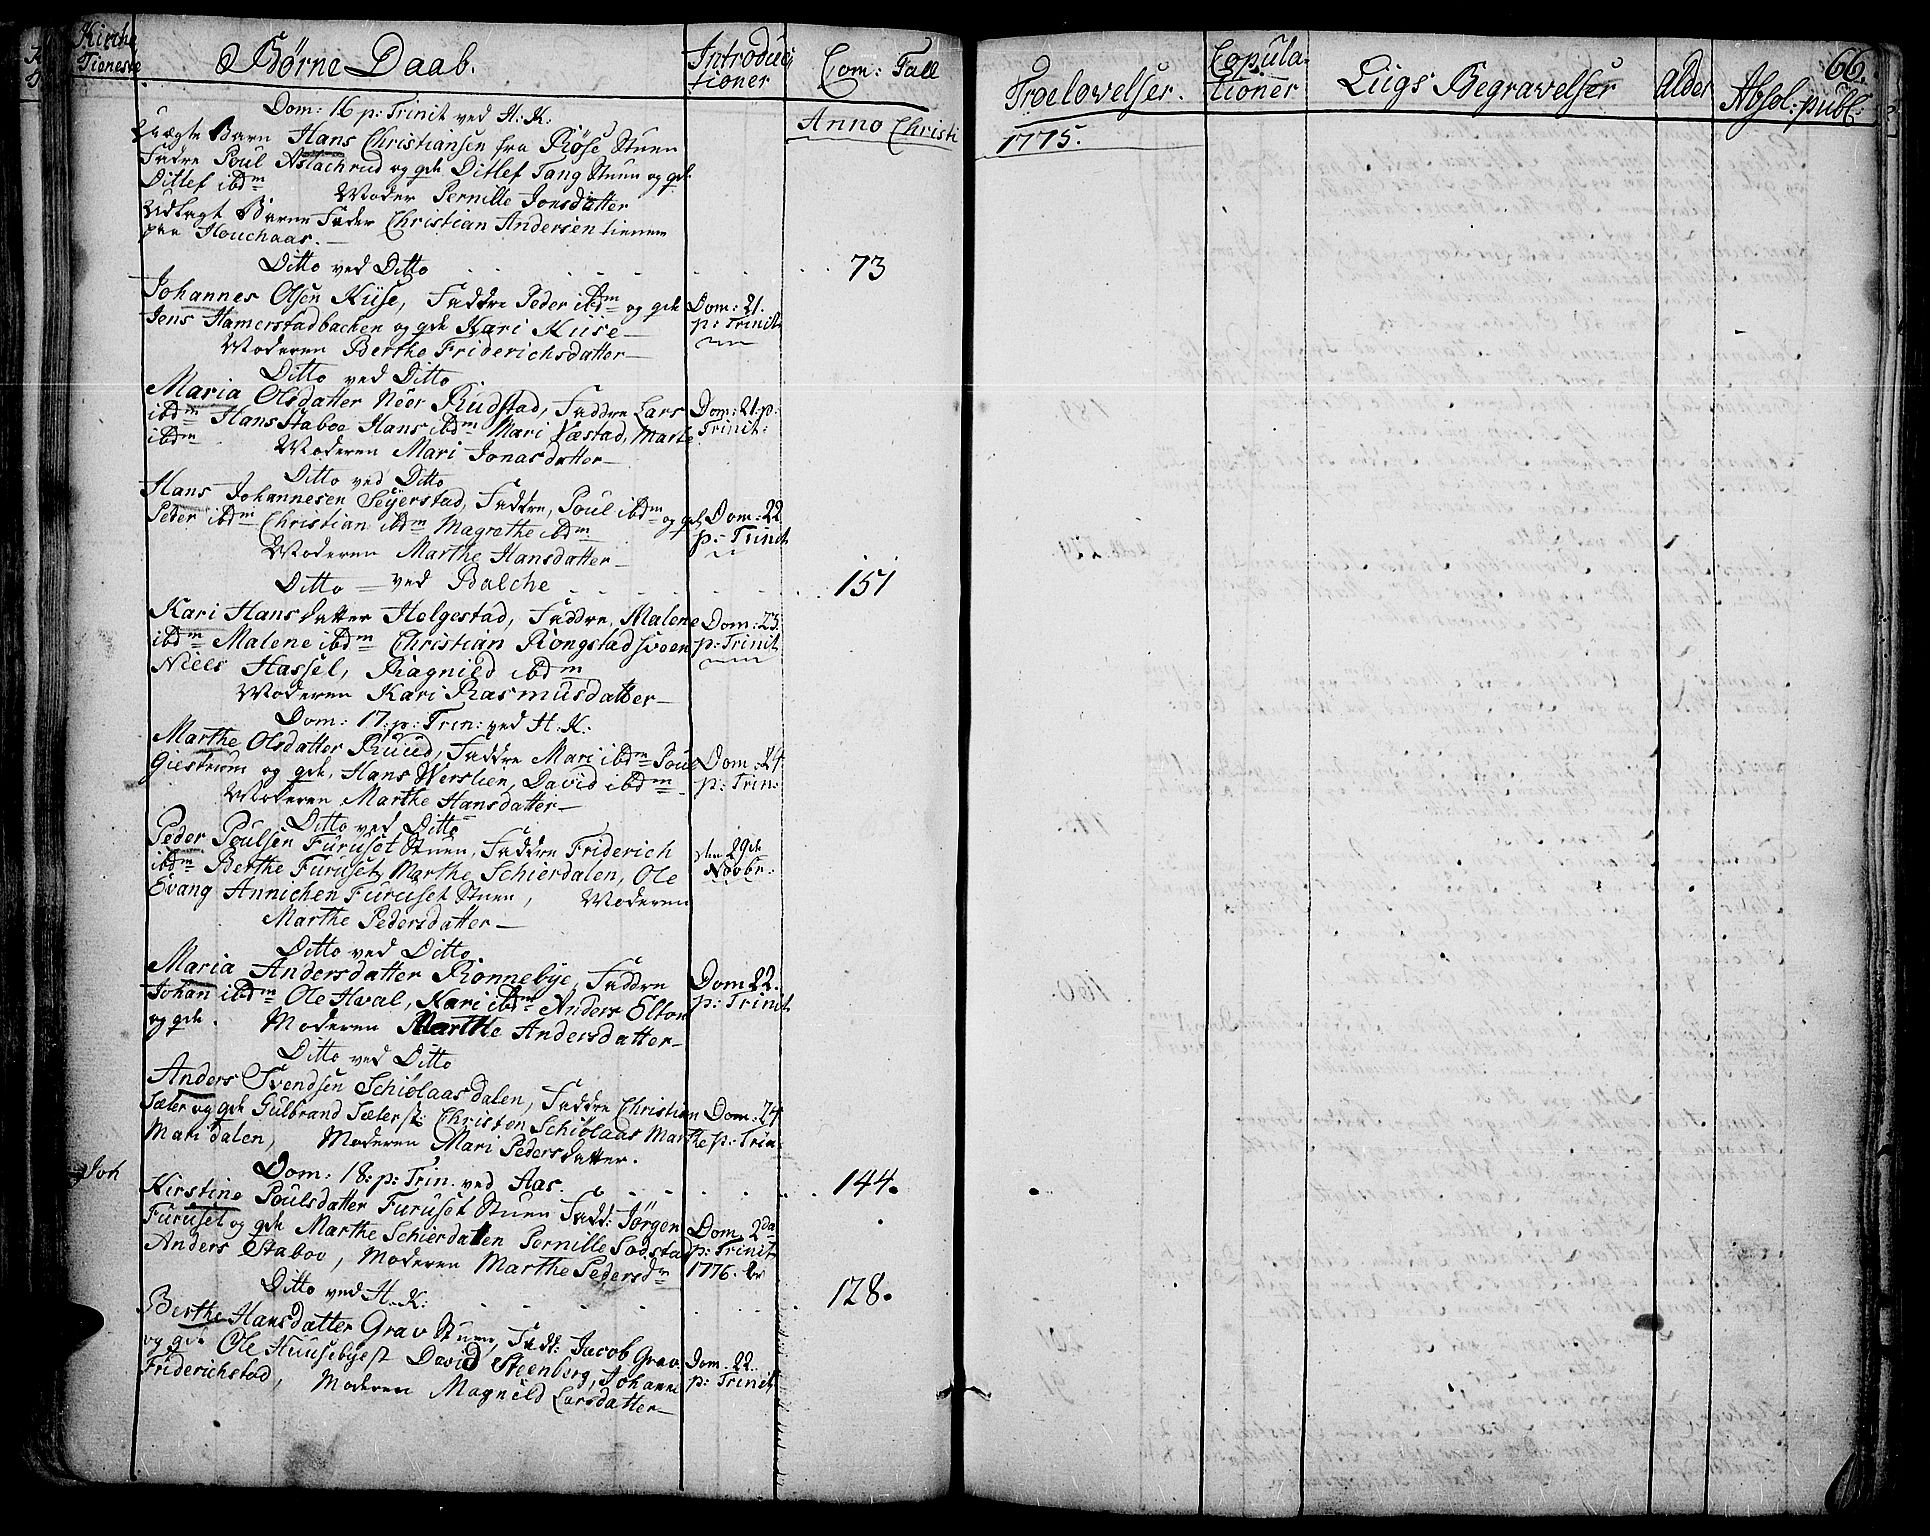 Kirche
Tieneste
Børne Daab.
Introduc
tioner
Com: Tall
Dom: 16 p: Trinit ved H: K:
Uægte Barn Hans Christiansen fra Røse Stuen
Faddre Poul Aslachrud og gde Ditlef Tang Stuen og gde
Ditlef ibdm Moder Pernille Jonsdatter
Udlagt Barne Fader Christian Andersen tienen
paa Houchaas.
Anno Christi
Ditto ved Ditto
73
Johannes Olsen Kiise, Faddre Peder ibdm og gde
Jens Hamerstadbachen og gde Kari Kiise
Moderen Berthe Friderichsdatter
Dom: 21.
p: Trinit
Ditto ved Ditto
Maria Olsdatter Neer Rudstad, Faddre Lars
ibdm Hans Staboe Hans ibdm Mari Næstad, Marte
ibdm Moderen Mari Jonasdatter
Dom: 21 p:
Trinit:
Ditto ved Ditto
Hans Johannesen Seyerstad, Faddre, Poul ibdm og gde
Peder ibdm Christian ibdm Magrethe ibdm
Moderen Marthe Hansdatter
Dom: 22
p: Trinit
Ditto ved Balche
151
Kari Hansdatter Helgestad, Faddre, Malene
ibdm Malene ibdm Christian Rongstad sveen
Niels Hassel, Ragnild ibdm
Moderen Kari Rasmusdatter
Dom: 23.
p: Trinit
Dom: 17. p: Trin: ved H: K:
Marthe Olsdatter Ruud, Faddre Mari ibdm Poul
og gde, Hans Werslien, David ibdm
Moderen Marthe Hansdatter
Dom: 24
p: Trin:
Ditto ved Ditto
Peder Poulsen Furuset Stuen, Faddre Friderich
ibdm Berthe Furuset, Marthe Schierdalen, Ole
Evang Annichen Furuset Stuen, Moderen
Marthe Pedersdatter
den 29de
Novbr:
Ditto ved Ditto
Maria Andersdatter Rønnebye, Faddre
Johan ibdm Ole Hval, Kari ibdm Anders Elton
og gde. Moderen Marthe Andersdatter
Dom 22.
p: Trinit
Ditto ved Ditto
Anders Svendsen Schiølaasdalen, Faddre Christian
Sæter og gde Gulbrand Sæterst: Christen Schiølaas Marthe
Maridalen, Moderen Mari Pedersdatter.
Dom: 24
p: Trin:
Joh
Dom: 18: p: Trin. ved Aas.
144.
Kirstine Poulsdatter Furuset Stuen Fadd: Jørgen
Furuset og gde Marthe Schierdalen Pernille Sodstad
Anders Stabov, Moderen Marthe Pedersdr
Dom. 2da
p: Trinit
1776.
Ditto ved H: K:
128.
Berthe Hansdatter Grav Stuen, Fadd: Jacob Grav
og gde Ole Huusebyest David Steenberg, Johanne
Friderichstad, Moderen Magnild Larsdatter
Dom. 22.
p: Trinit
Troelovelser.
Copula-
tioner
Liigs Begravelser
Alder
Absol: publ:
66.
1775.